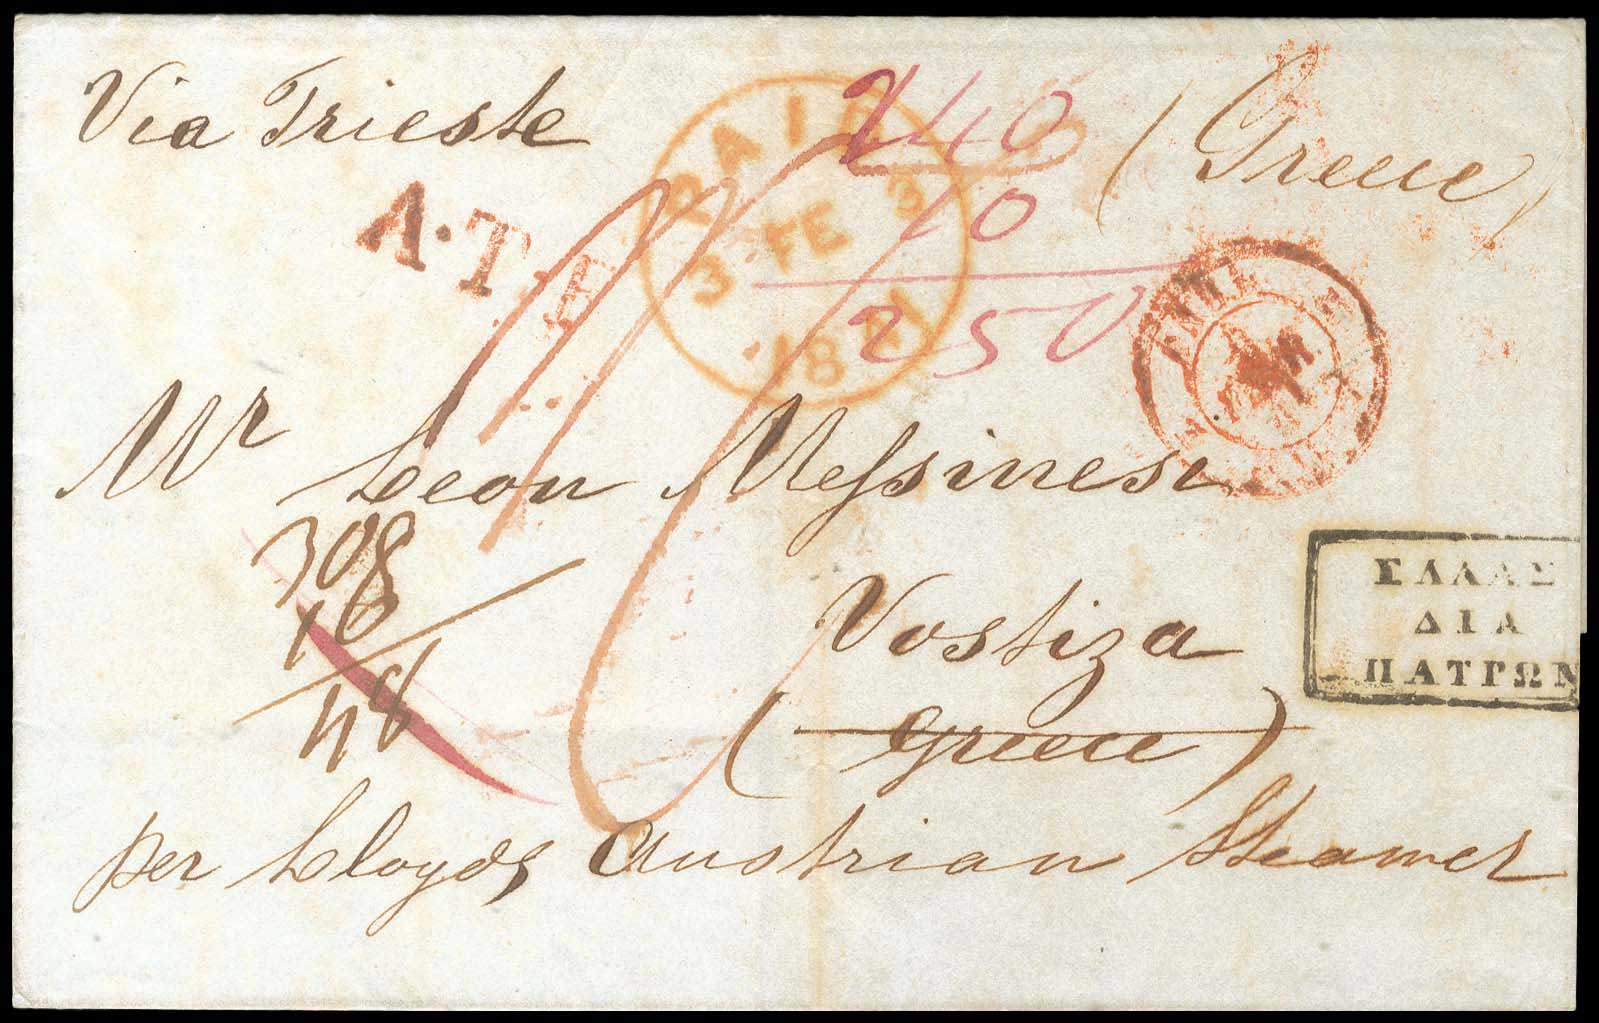 Via Trieste
PAID
3 FE 3
240
(Greece)
A.T.F
10
250
Mr Leon Messinesi
308
10
48
Vostiza
(Greece)
ΕΛΛΑΣ
ΔΙΑ
ΠΑΤΡΩΝ
per Lloyds Austrian Steamer